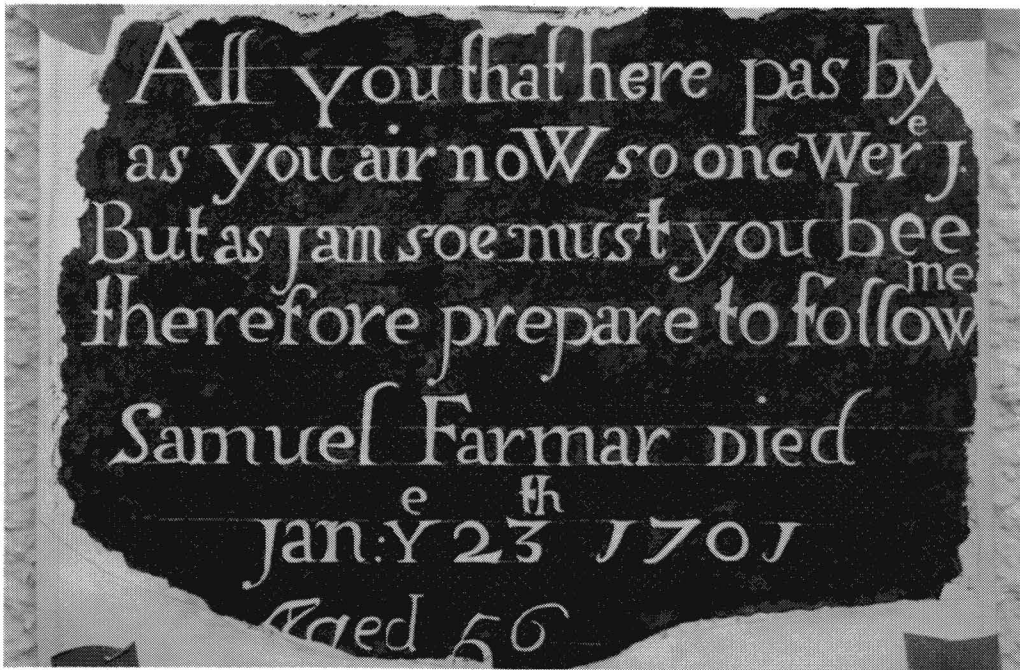 All you that here pas by
as you air now so once Wer^e J.
But as J am soe must you bee
therefore prepare to follow me
Samuel Farmar Died
Jan: Y^e 23^th 1701
Aged 56